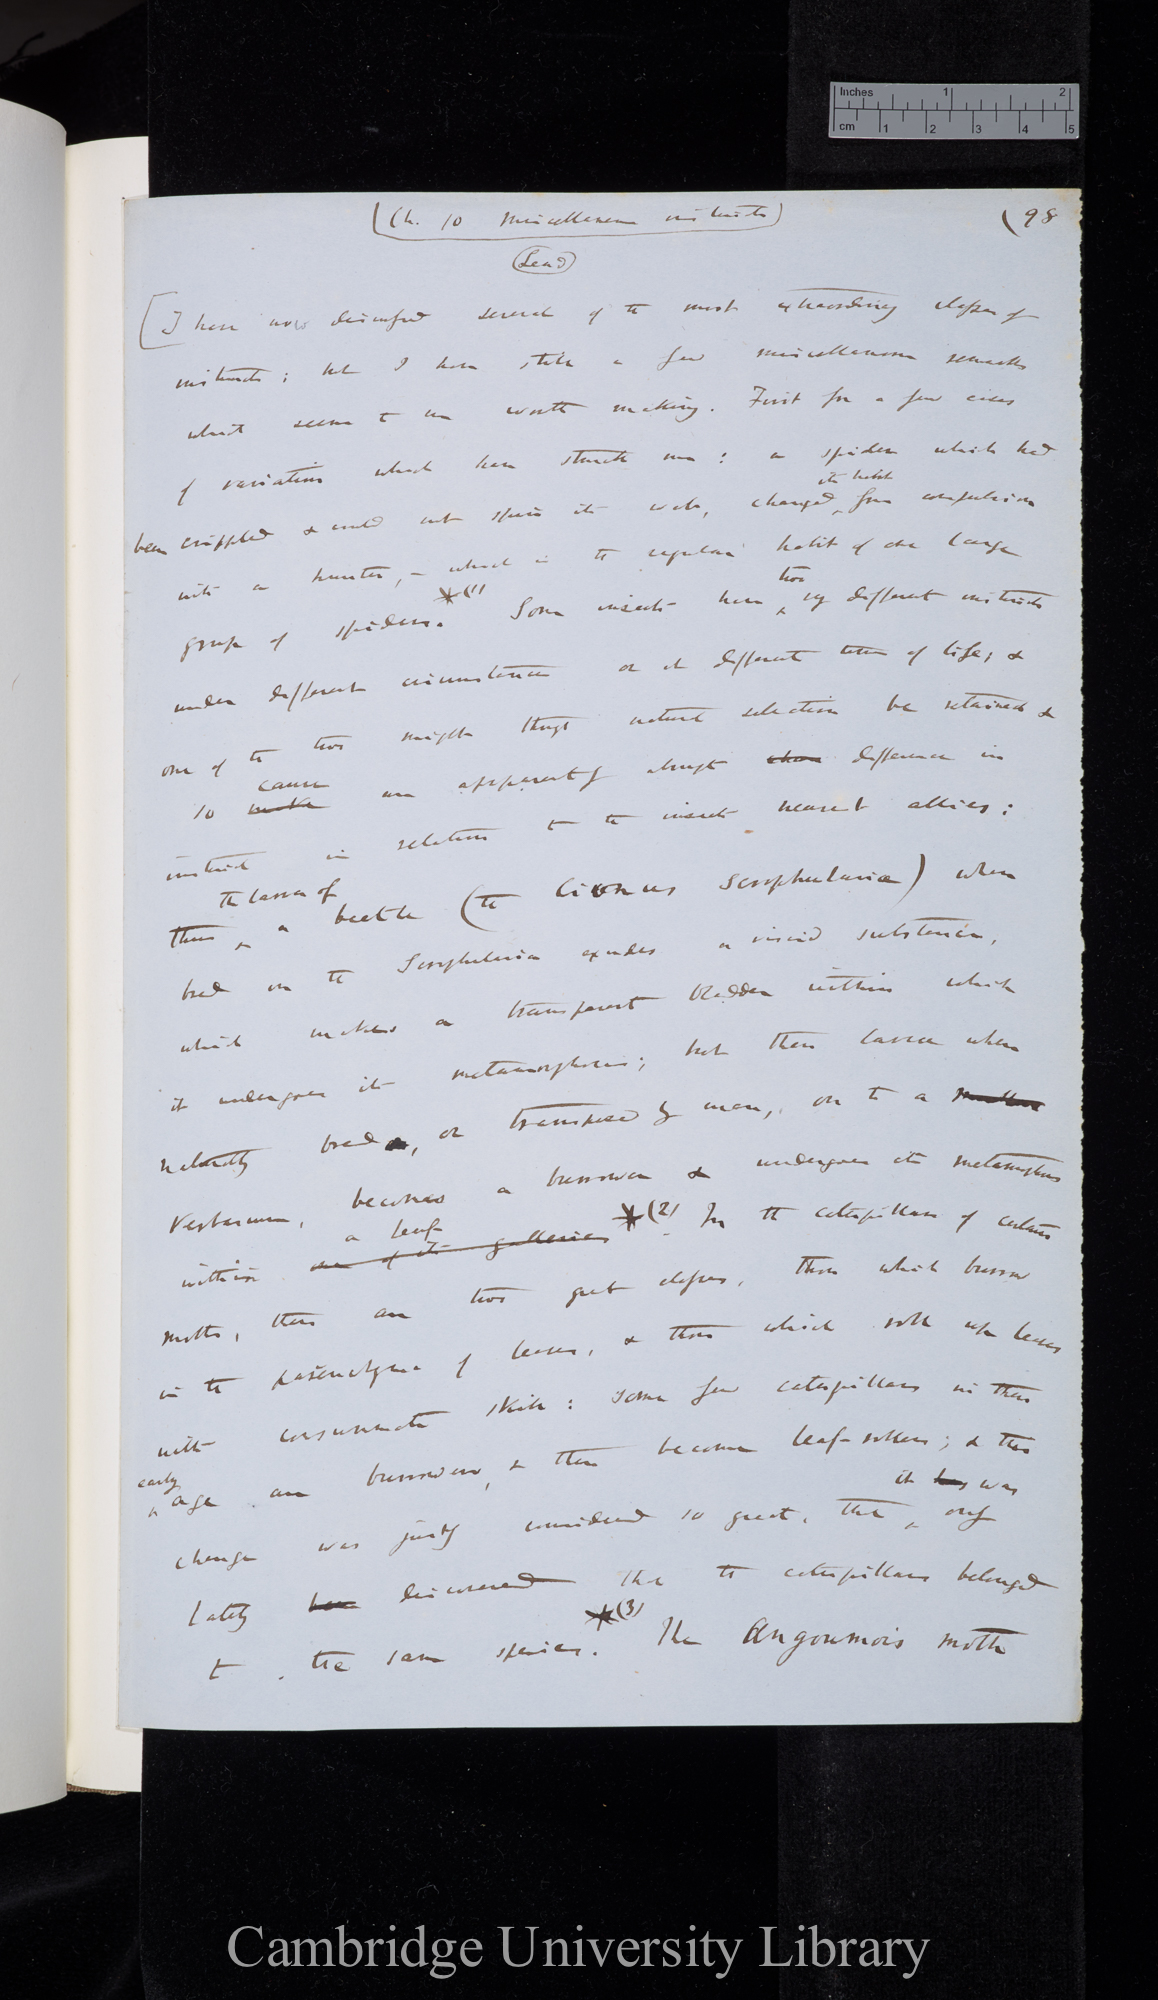 Inches 1 2
cm 1 2 3 4 5
(Ch. 10 Miscellaneous instincts) (98
(Lead)
[I have now discussed several of the most extraordinary classes of
instincts; but I have still a few miscellaneous remarks
which seem to me worth making. First for a few cases
of variation which have struck me: a spider which had
its habit
been crippled & could not spin its web, changed from compulsion
into a hunter, – which is the regular habit of one large
two
group of spiders.*(1) Some insects have vy different instincts
under different circumstances or at different times of life; &
one of the two might through natural selection be retained &
cause
so make an apparently abrupt difference in
instinct in relation to the insects nearest allies:
the larva of
thus a beetle (the Cionus Scrophulariæ) when
bred on the Scrophularia exudes a viscid substance,
which makes a transparent bladder within which
it undergoes its metamorphosis; but then larva when
naturally bred, or transposed by man, on to a
Verbascum, becomes a burrower & undergoes its metamorphosis
a leaf
within one of its galleries *(2). In the caterpillars of certain
moths, there are two great classes, those which burrow
in the parenchyma of leaves, & those which roll up leaves
with consummate skill: some few caterpillars in their
early
age are burrowers, & then become leaf-rollers; & this
it has was
change was justly considered so great, that only
lately been discovered that the caterpillars belonged
to the same species.*(3) The Angoumois moth
Cambridge University Library